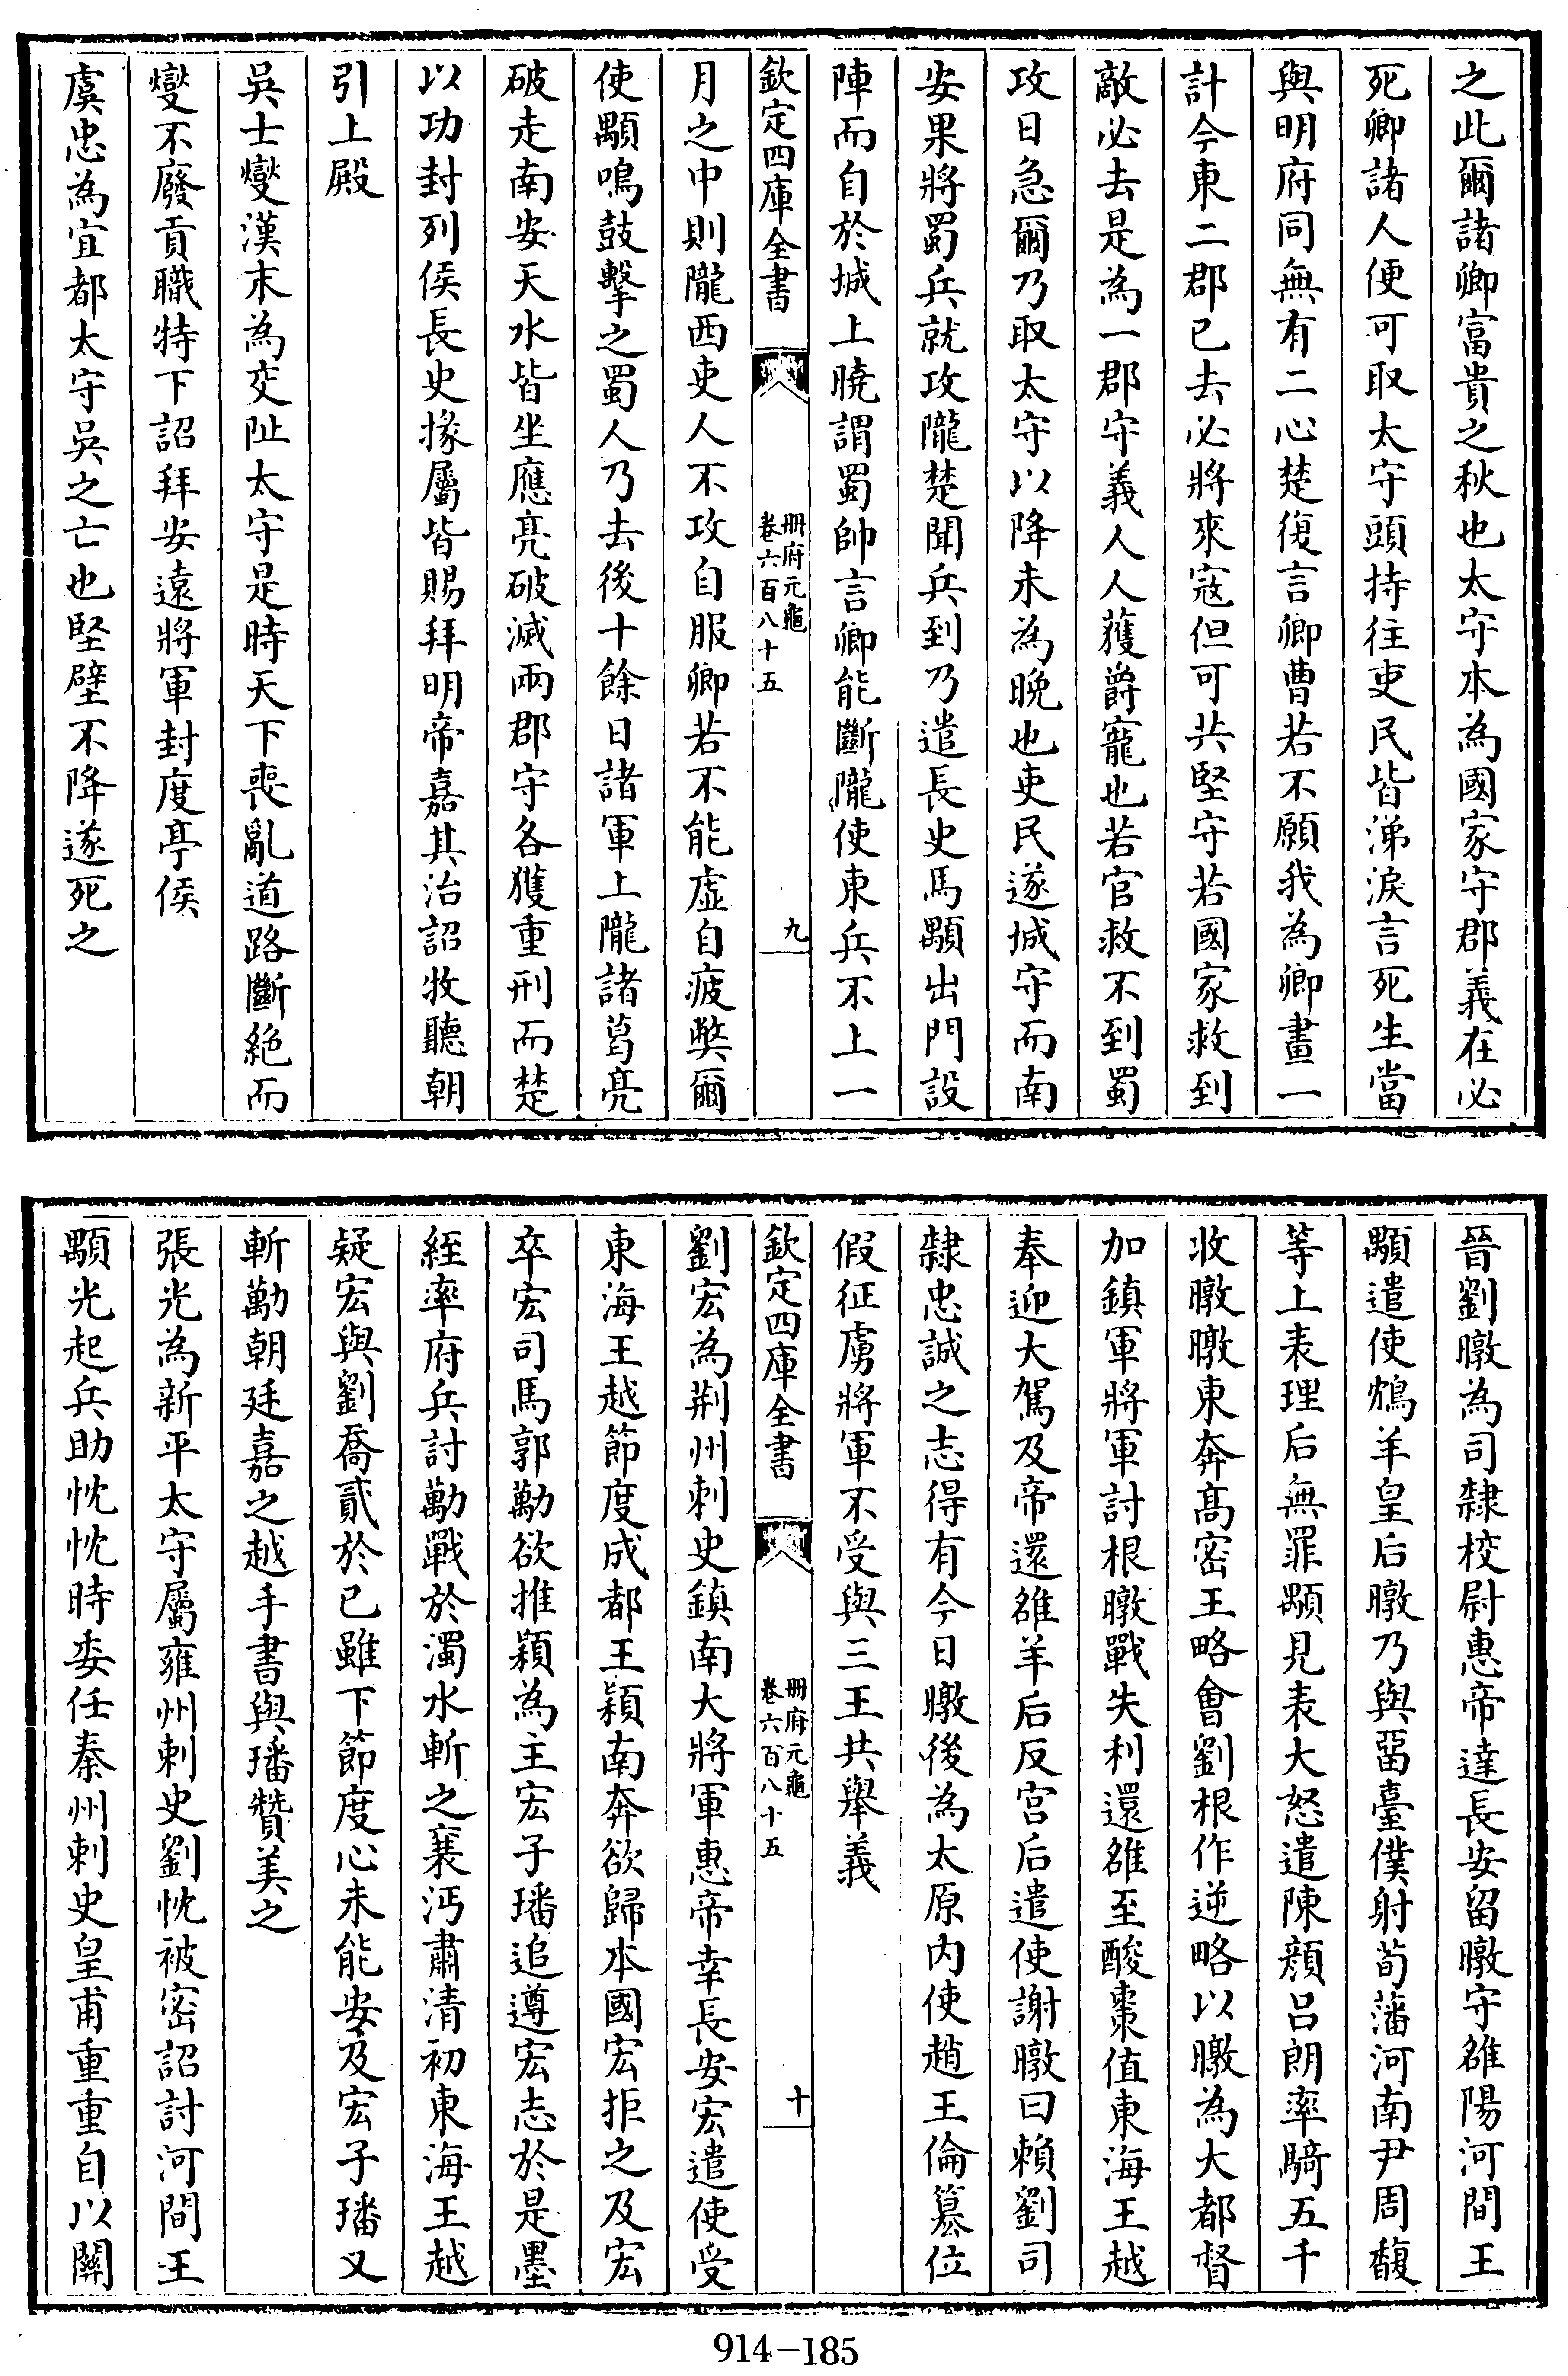 之此爾諸卿富貴之秋也太守本為國家守郡義在必
死卿諸人便可取太守頭持往吏民皆涕淚言死生當
與明府同無有二心楚復言卿曹若不願我為卿畫一
計今東二郡已去必將來寇但可共堅守若國家救到
敵必去是為一郡守義人人獲爵寵也若官救不到蜀
攻日急爾乃取太守以降未為晚也吏民遂城守而南
安果將蜀兵就攻隴楚聞兵到乃遣長史馬顒出門設
陣而自於城上曉謂蜀帥言卿能斷隴使東兵不上一
欽定四庫全書
冊府元龜
卷六百八十五
九
月之中則隴西吏人不攻自服卿若不能虛自疲弊爾
使顒鳴鼓擊之蜀人乃去後十餘日諸軍上隴諸葛亮
破走南安天水皆坐應亮破滅兩郡守各獲重刑而楚
以功封列侯長史掾屬皆賜拜明帝嘉其治詔牧聽朝
引上殿
吳士燮漢末為交阯太守是時天下喪亂道路斷絕而
燮不廢貢職特下詔拜安遠將軍封度亭侯
虞忠為宜都太守吳之亡也堅壁不降遂死之
晉劉暾為司隸校尉惠帝達長安留暾守雒陽河間王
顒遣使鴆羊皇后暾乃與畱臺僕射荀藩河南尹周馥
等上表理后無罪顒見表大怒遣陳顔呂朗率騎五千
收暾暾東奔髙密王略會劉根作逆略以暾為大都督
加鎮軍將軍討根暾戰失利還雒至酸棗值東海王越
奉迎大駕及帝還雒羊后反宫后遣使謝暾曰賴劉司
隸忠誠之志得有今日暾後為太原内使趙王倫簒位
假征虜將軍不受與三王共舉義
欽定四庫全書
冊府元龜
卷六百八十五
十
劉宏為荆州刺史鎮南大將軍惠帝幸長安宏遣使受
東海王越節度成都王穎南奔欲歸本國宏拒之及宏
卒宏司馬郭勱欲推穎為主宏子璠追遵宏志於是墨
絰率府兵討勱戰於濁水斬之襄沔肅清初東海王越
疑宏與劉喬貳於已雖下節度心未能安及宏子璠又
斬勱朝廷嘉之越手書與璠贊美之
張光為新平太守屬雍州刺史劉忱被密詔討河間王
顒光起兵助忱忱時委任秦州刺史皇甫重重自以關
914－185